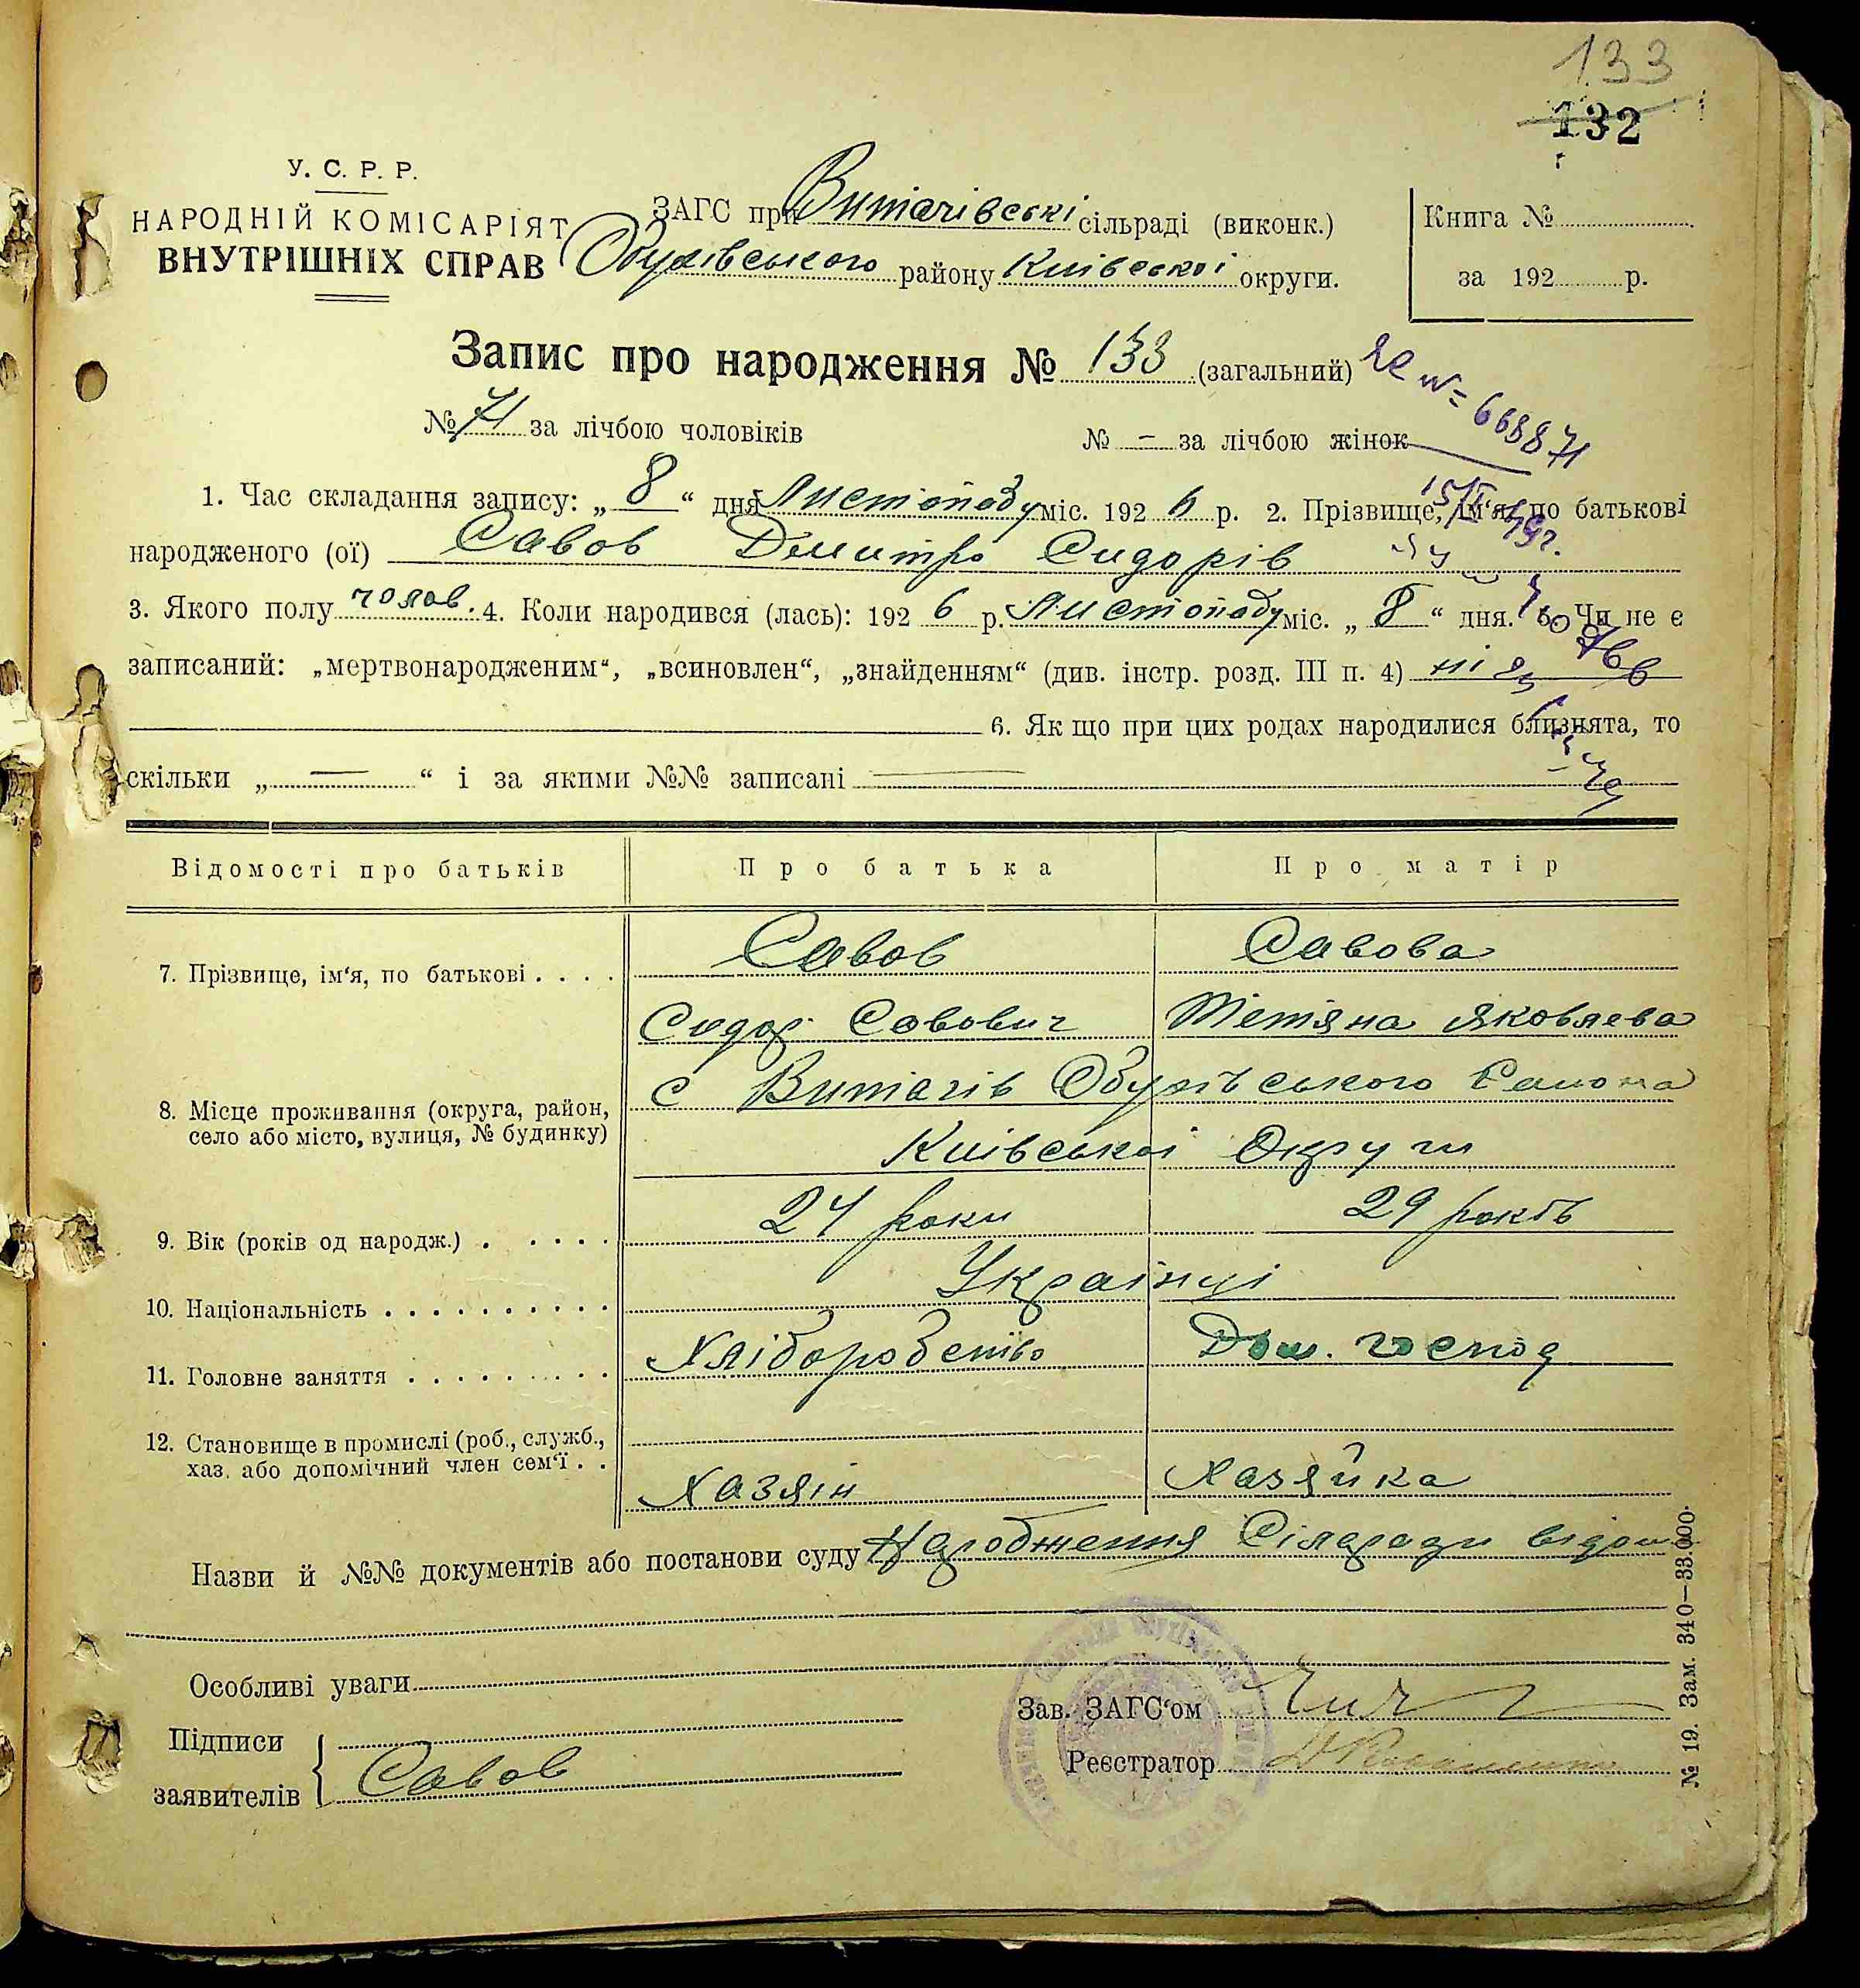 133
132
У. С. Р. Р.
НАРОДНІЙ КОМІСАРІЯТ
ВНУТРІШНІХ СПРАВ
ЗАГС при Витачівські сільраді (виконк.)
Обухівського району Київської округи.
Книга №
за 192 р.
Запис про народження № 133 (загальний)
№ 71 за лічбою чоловіків № - за лічбою жінок
№ 668871
1. Час складання запису: „ 8 “ дня Листопаду міс. 192 6 р. 2. Прізвище, ім‘я, по батькові
народженого (ої) Савов Дмитро Сидорів
3. Якого полу чолов. 4. Коли народився (лась): 192 6 р. Листопаду міс. „ 8 “ дня. 5. Чи не є
записаний: „мертвонародженим“, „всиновлен“, „знайденням“ (див. інстр. розд. III п. 4) ні
6. Як що при цих родах народилися близнята, то
скільки „ — “ і за якими №№ записані —
Відомості про батьків Про батька Про матір
7. Прізвище, ім‘я, по батькові . . . . Савов Савова
Сидор Савович Тетяна Яковлева
8. Місце проживання (округа, район, село або місто, вулиця, № будинку) с Витачів Обухівського Района
Київської Округи
9. Вік (років од народж.) . . . . . 24 роки 29 років
10. Національність . . . . . . . . . . Українці
11. Головне заняття . . . . . . . . . Хліборобство Дом. господ
12. Становище в промислі (роб., служб.,
хаз. або допомічний член сем‘ї . . Хазяін Хазяйка
Назви й №№ документів або постанови суду Народження Сільради відом
Особливі уваги
Підписи
заявителів Савов
Зав. ЗАГС‘ом
Реєстратор
№ 19. Зам. 340—33.000.